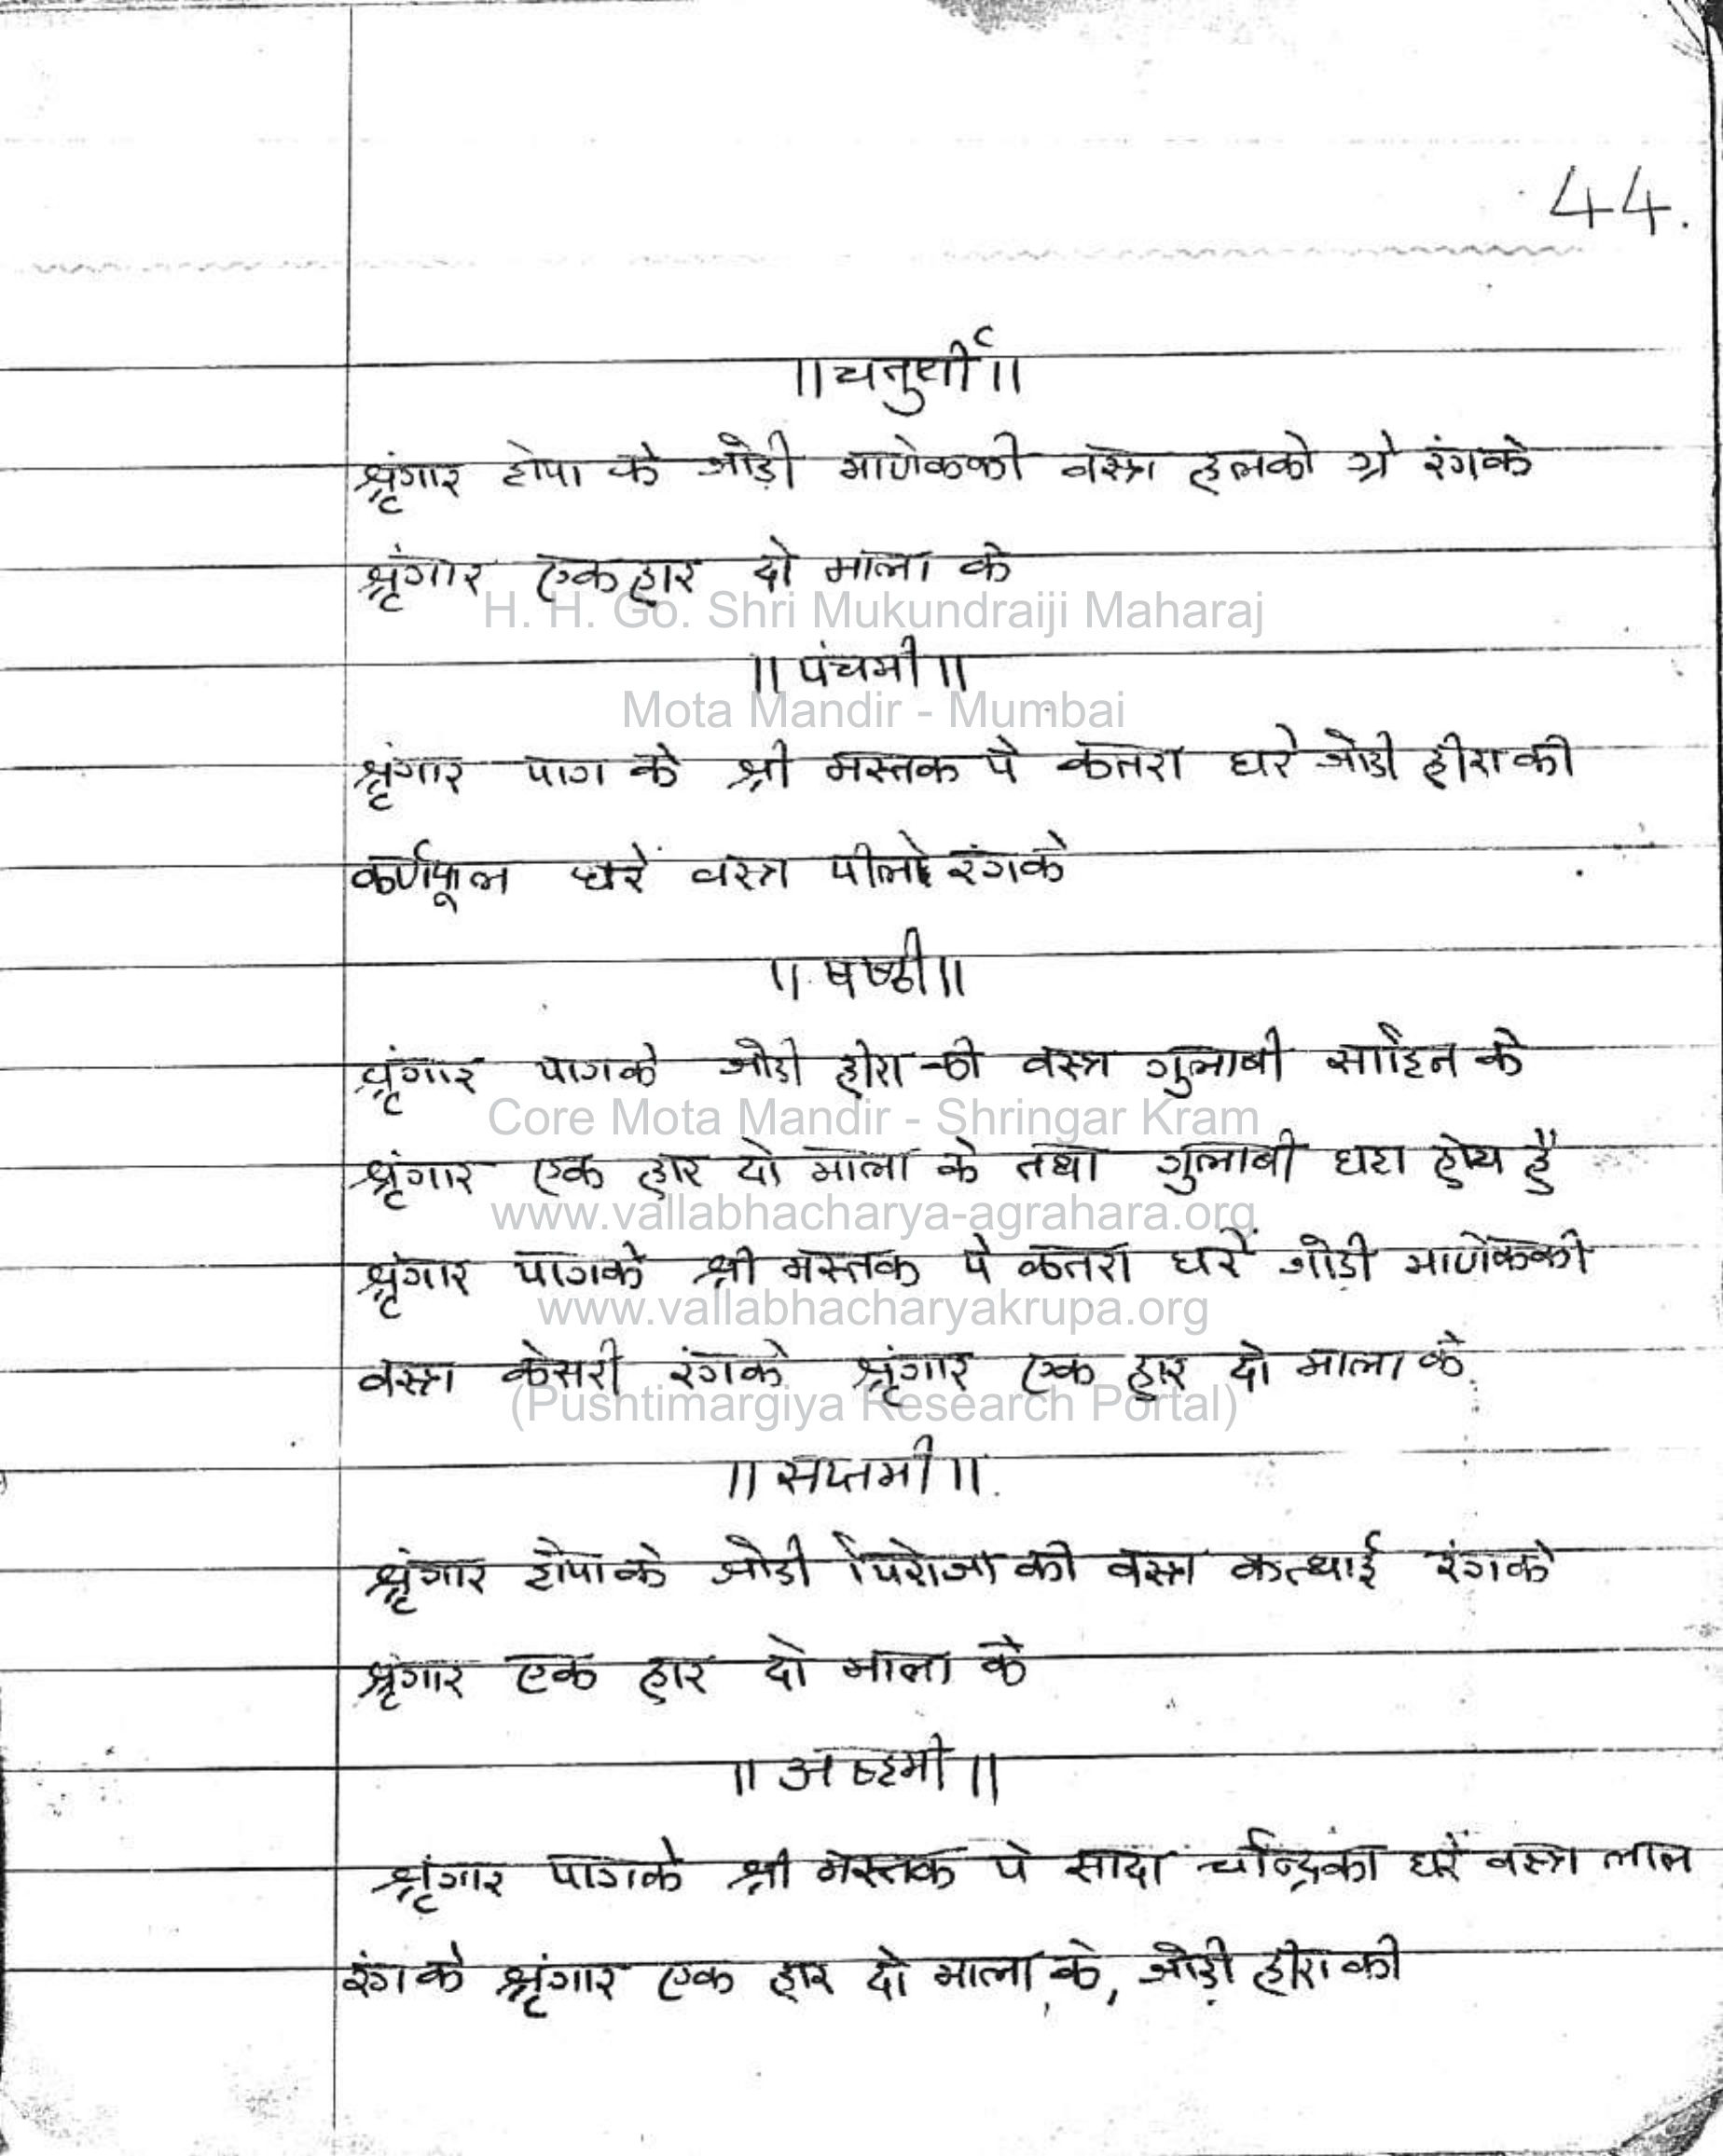 44.
॥ चतुर्थी ॥
श्रृंगार टोपा के जोड़ी माणेककी वस्त्र हलको ग्रे रंगके
श्रृंगार एक हार दो माला के
H. H. Go. Shri Mukundraiji Maharaj
॥ पंचमी ॥
Mota Mandir - Mumbai
श्रृंगार पाग के श्री मस्तक पे कतरा धरे जोडी हीराकी
कर्णफूल धरें वस्त्र पीले रंगके
॥ षष्ठी ॥
श्रृंगार पागके जोडी हीरा की वस्त्र गुलाबी साटिन के
Core Mota Mandir - Shringar Kram
श्रृंगार एक हार दो माला के तथा गुलाबी घटा होय है
www.vallabhacharya-agrahara.org
श्रृंगार पागके श्री मस्तक पे कतरा धरें जोडी माणेककी
www.vallabhacharyakrupa.org
वस्त्र केसरी रंगके श्रृंगार एक हार दो माला के
(Pushtimargiya Research Portal)
॥ सप्तमी ॥
श्रृंगार टोपाके जोडी पिरोजा की वस्त्र कत्थाई रंगके
श्रृंगार एक हार दो माला के
॥ अष्टमी ॥
श्रृंगार पागके श्री मस्तक पे सादा चन्द्रिका धरें वस्त्र लाल
रंग के श्रृंगार एक हार दो माला के, जोड़ी हीरा की